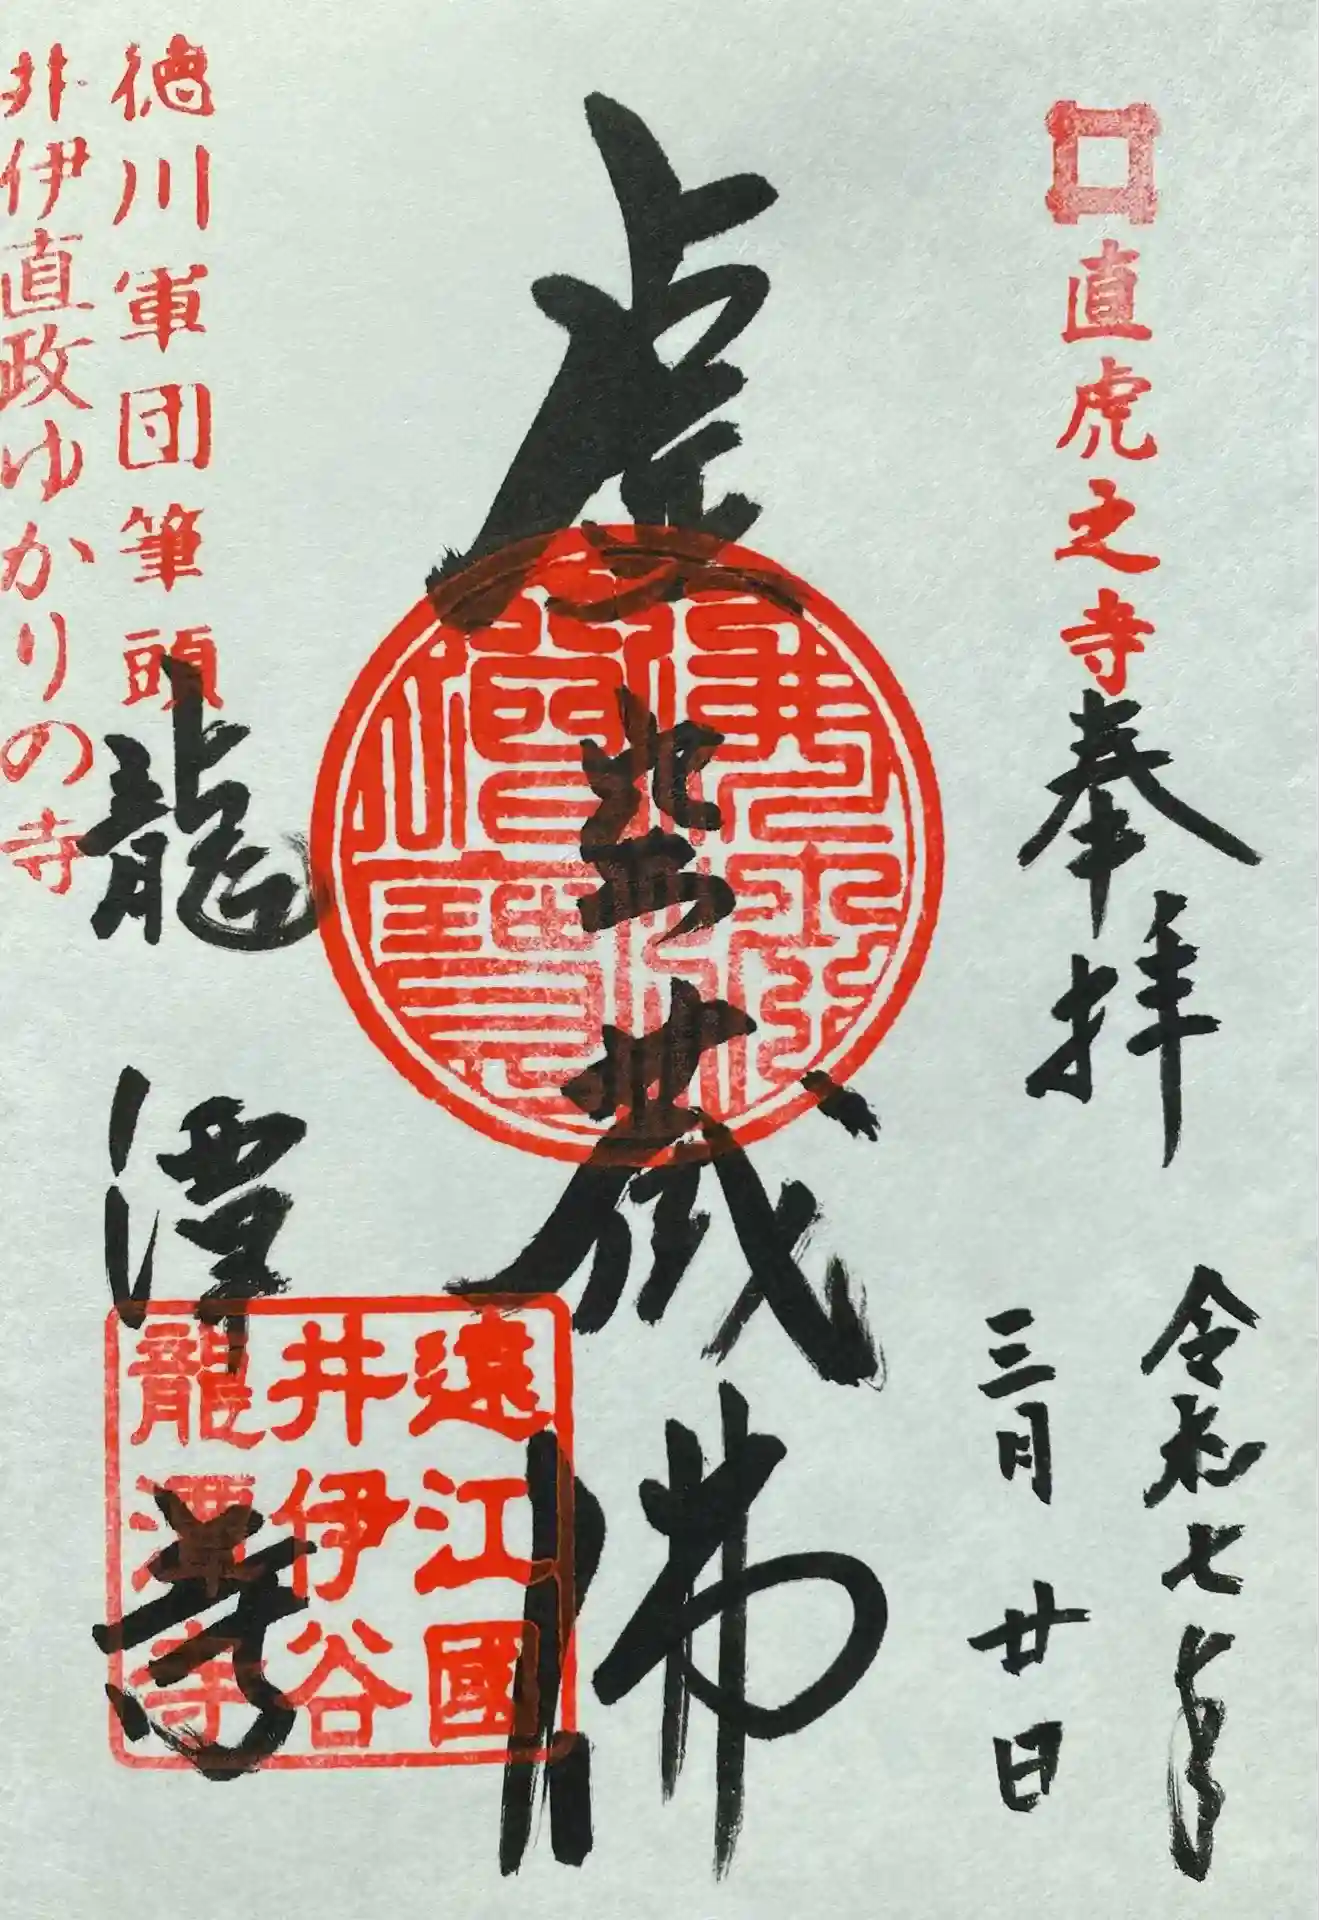 直虎之寺
奉拝
令和七年
三月廿日
虚空蔵佛
佛法僧寶
徳川軍団筆頭
井伊直政ゆかりの寺
龍潭寺
遠江國
井伊谷
龍潭寺